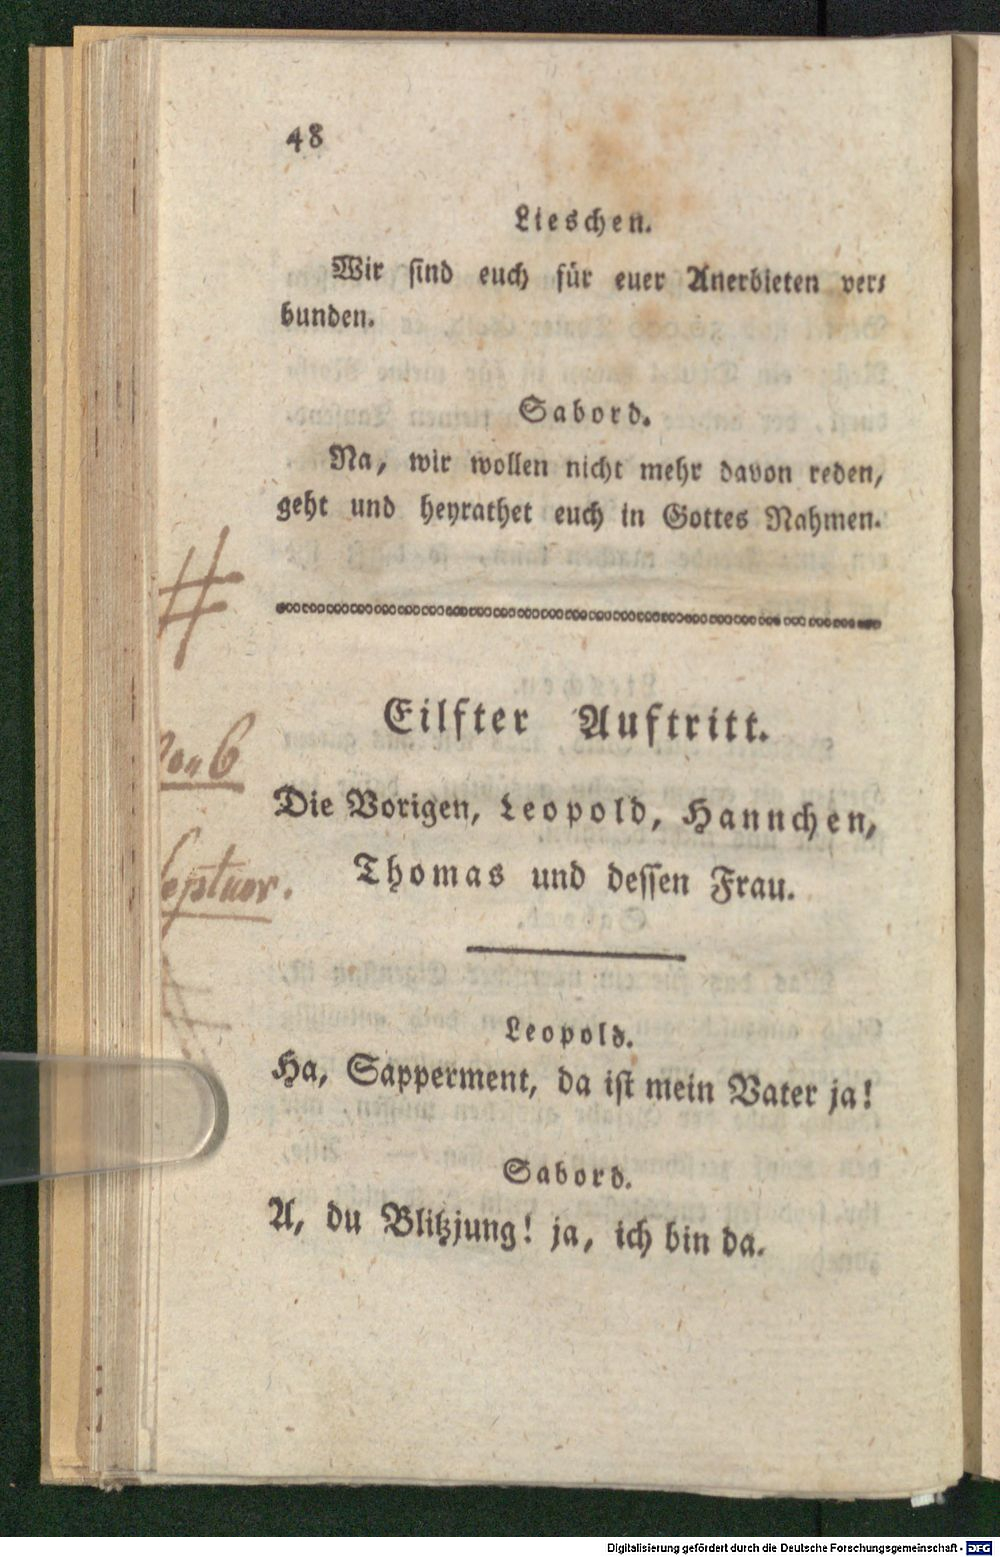 48
Lieschen.
Wir sind euch für euer Anerbieten ver-
bunden.
Sabord.
Na, wir wollen nicht mehr davon reden,
geht und heyrathet euch in Gottes Nahmen.
#
Eilfter Auftritt.
No 6
Die Vorigen, Leopold, Hannchen,
Septuor.
Thomas und dessen Frau.
Leopold.
Ha, Sapperment, da ist mein Vater ja!
Sabord.
A, du Blitzjung! ja, ich bin da.
Digitalisierung gefördert durch die Deutsche Forschungsgemeinschaft - DFG